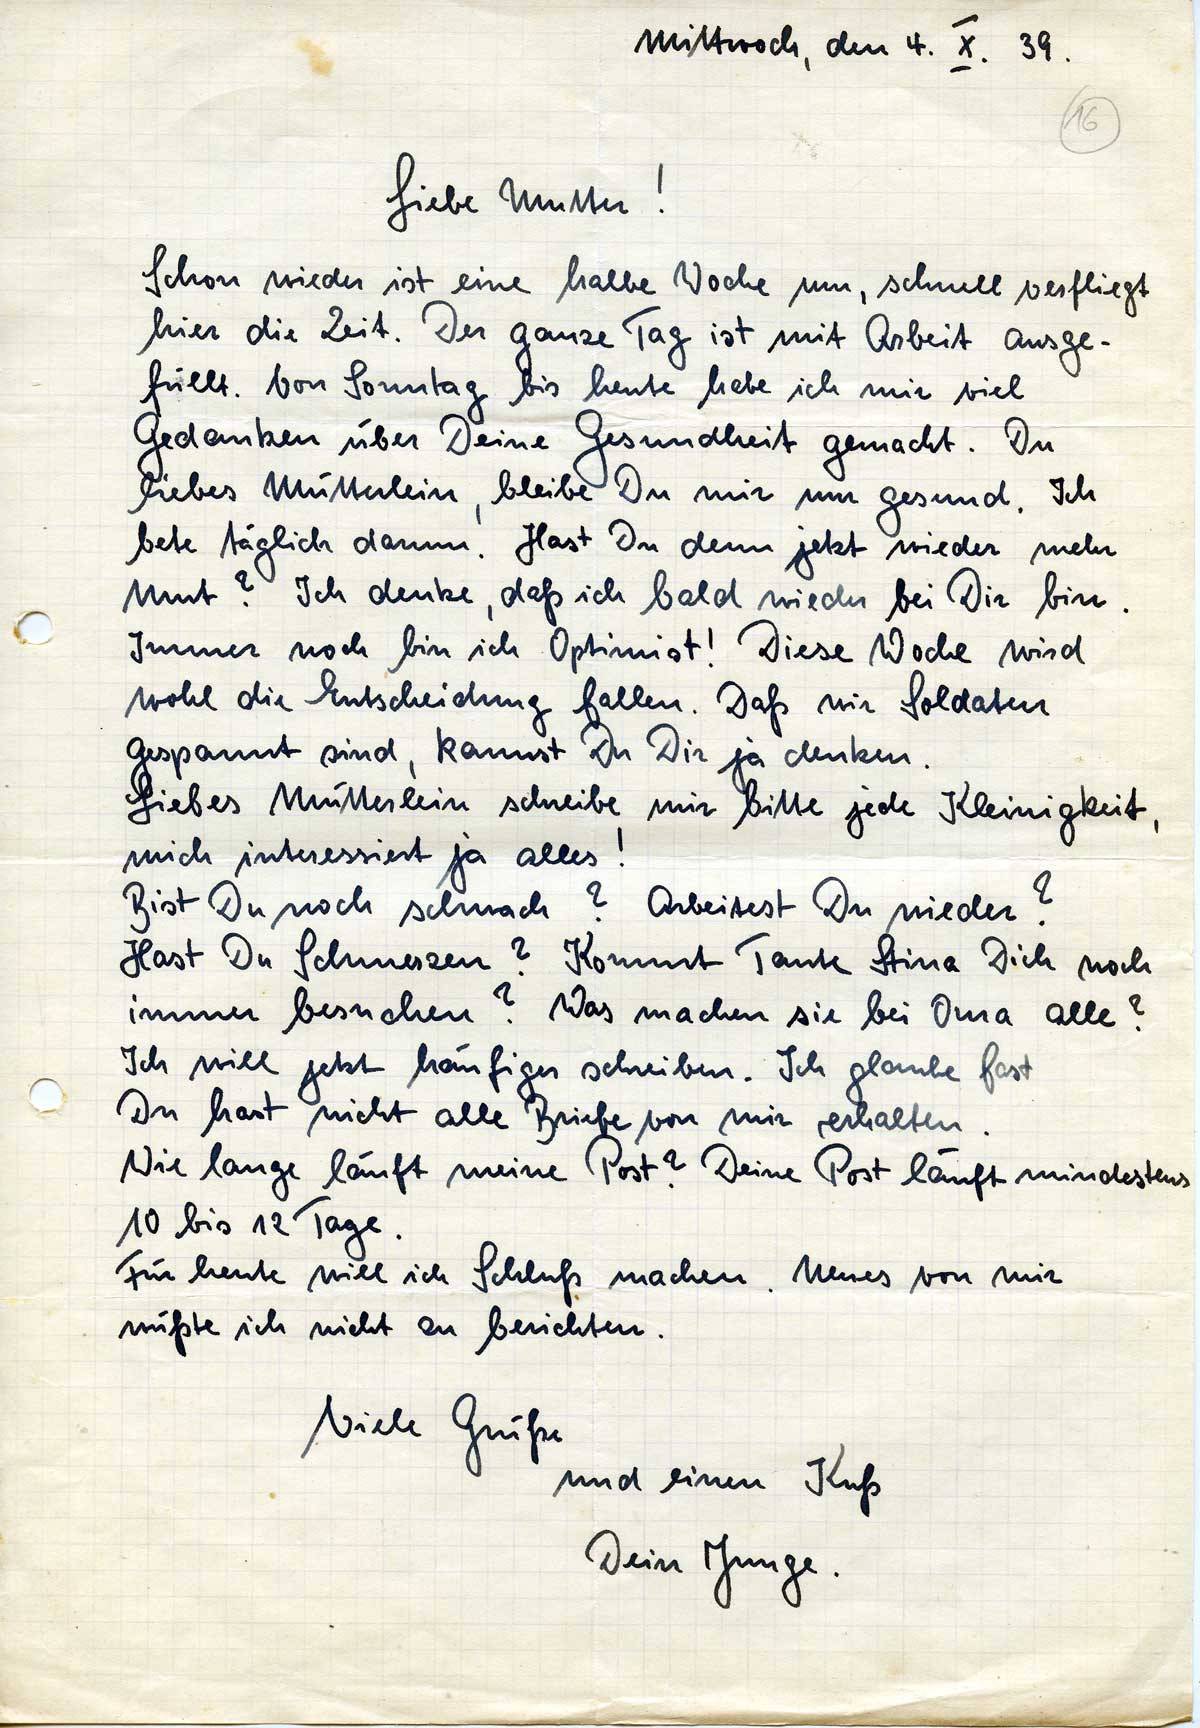 Mittwoch, den 4. X. 39.
16
Liebe Mutter!
Schon wieder ist eine halbe Woche um, schnell verfliegt
hier die Zeit. Der ganze Tag ist mit Arbeit ausge-
füllt. Von Sonntag bis heute habe ich mir viel
Gedanken über Deine Gesundheit gemacht. Du
liebes Mütterlein, bleibe Du mir nur gesund. Ich
bete täglich darum! Hast Du denn jetzt wieder mehr
Mut? Ich denke, daß ich bald wieder bei Dir bin.
Immer noch bin ich Optimist! Diese Woche wird
wohl die Entscheidung fallen. Daß wir Soldaten
gespannt sind, kannst Du Dir ja denken.
Liebes Mütterlein schreibe mir bitte jede Kleinigkeit,
mich interessiert ja alles!
Bist Du noch schwach? Arbeitest Du wieder?
Hast Du Schmerzen? Kommt Tante Stina Dich noch
immer besuchen? Was machen sie bei Oma alle?
Ich will jetzt häufiger schreiben. Ich glaube fast
Du hast nicht alle Briefe von mir erhalten.
Wie lange läuft meine Post? Deine Post läuft mindestens
10 bis 12 Tage.
Für heute will ich Schluß machen. Neues von mir
wüßte ich nicht zu berichten.
Viele Grüße
und einen Kuß
Dein Junge.